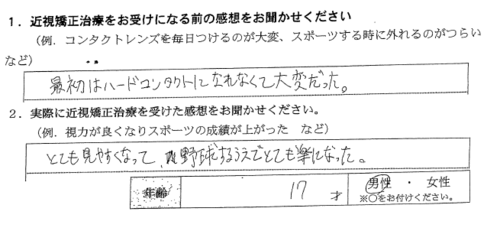 1．近視矯正治療をお受けになる前の感想をお聞かせください
(例．コンタクトレンズを毎日つけるのが大変、スポーツする時に外れるのがつらい
など)
最初はハードコンタクトになれなくて大変だった。
2．実際に近視矯正治療を受けた感想をお聞かせください。
(例．視力が良くなりスポーツの成績が上がった など)
とても見やすくなって、野球するうえでとても楽になった。
年齢 17 才 男性 ・ 女性
※○をお付けください。